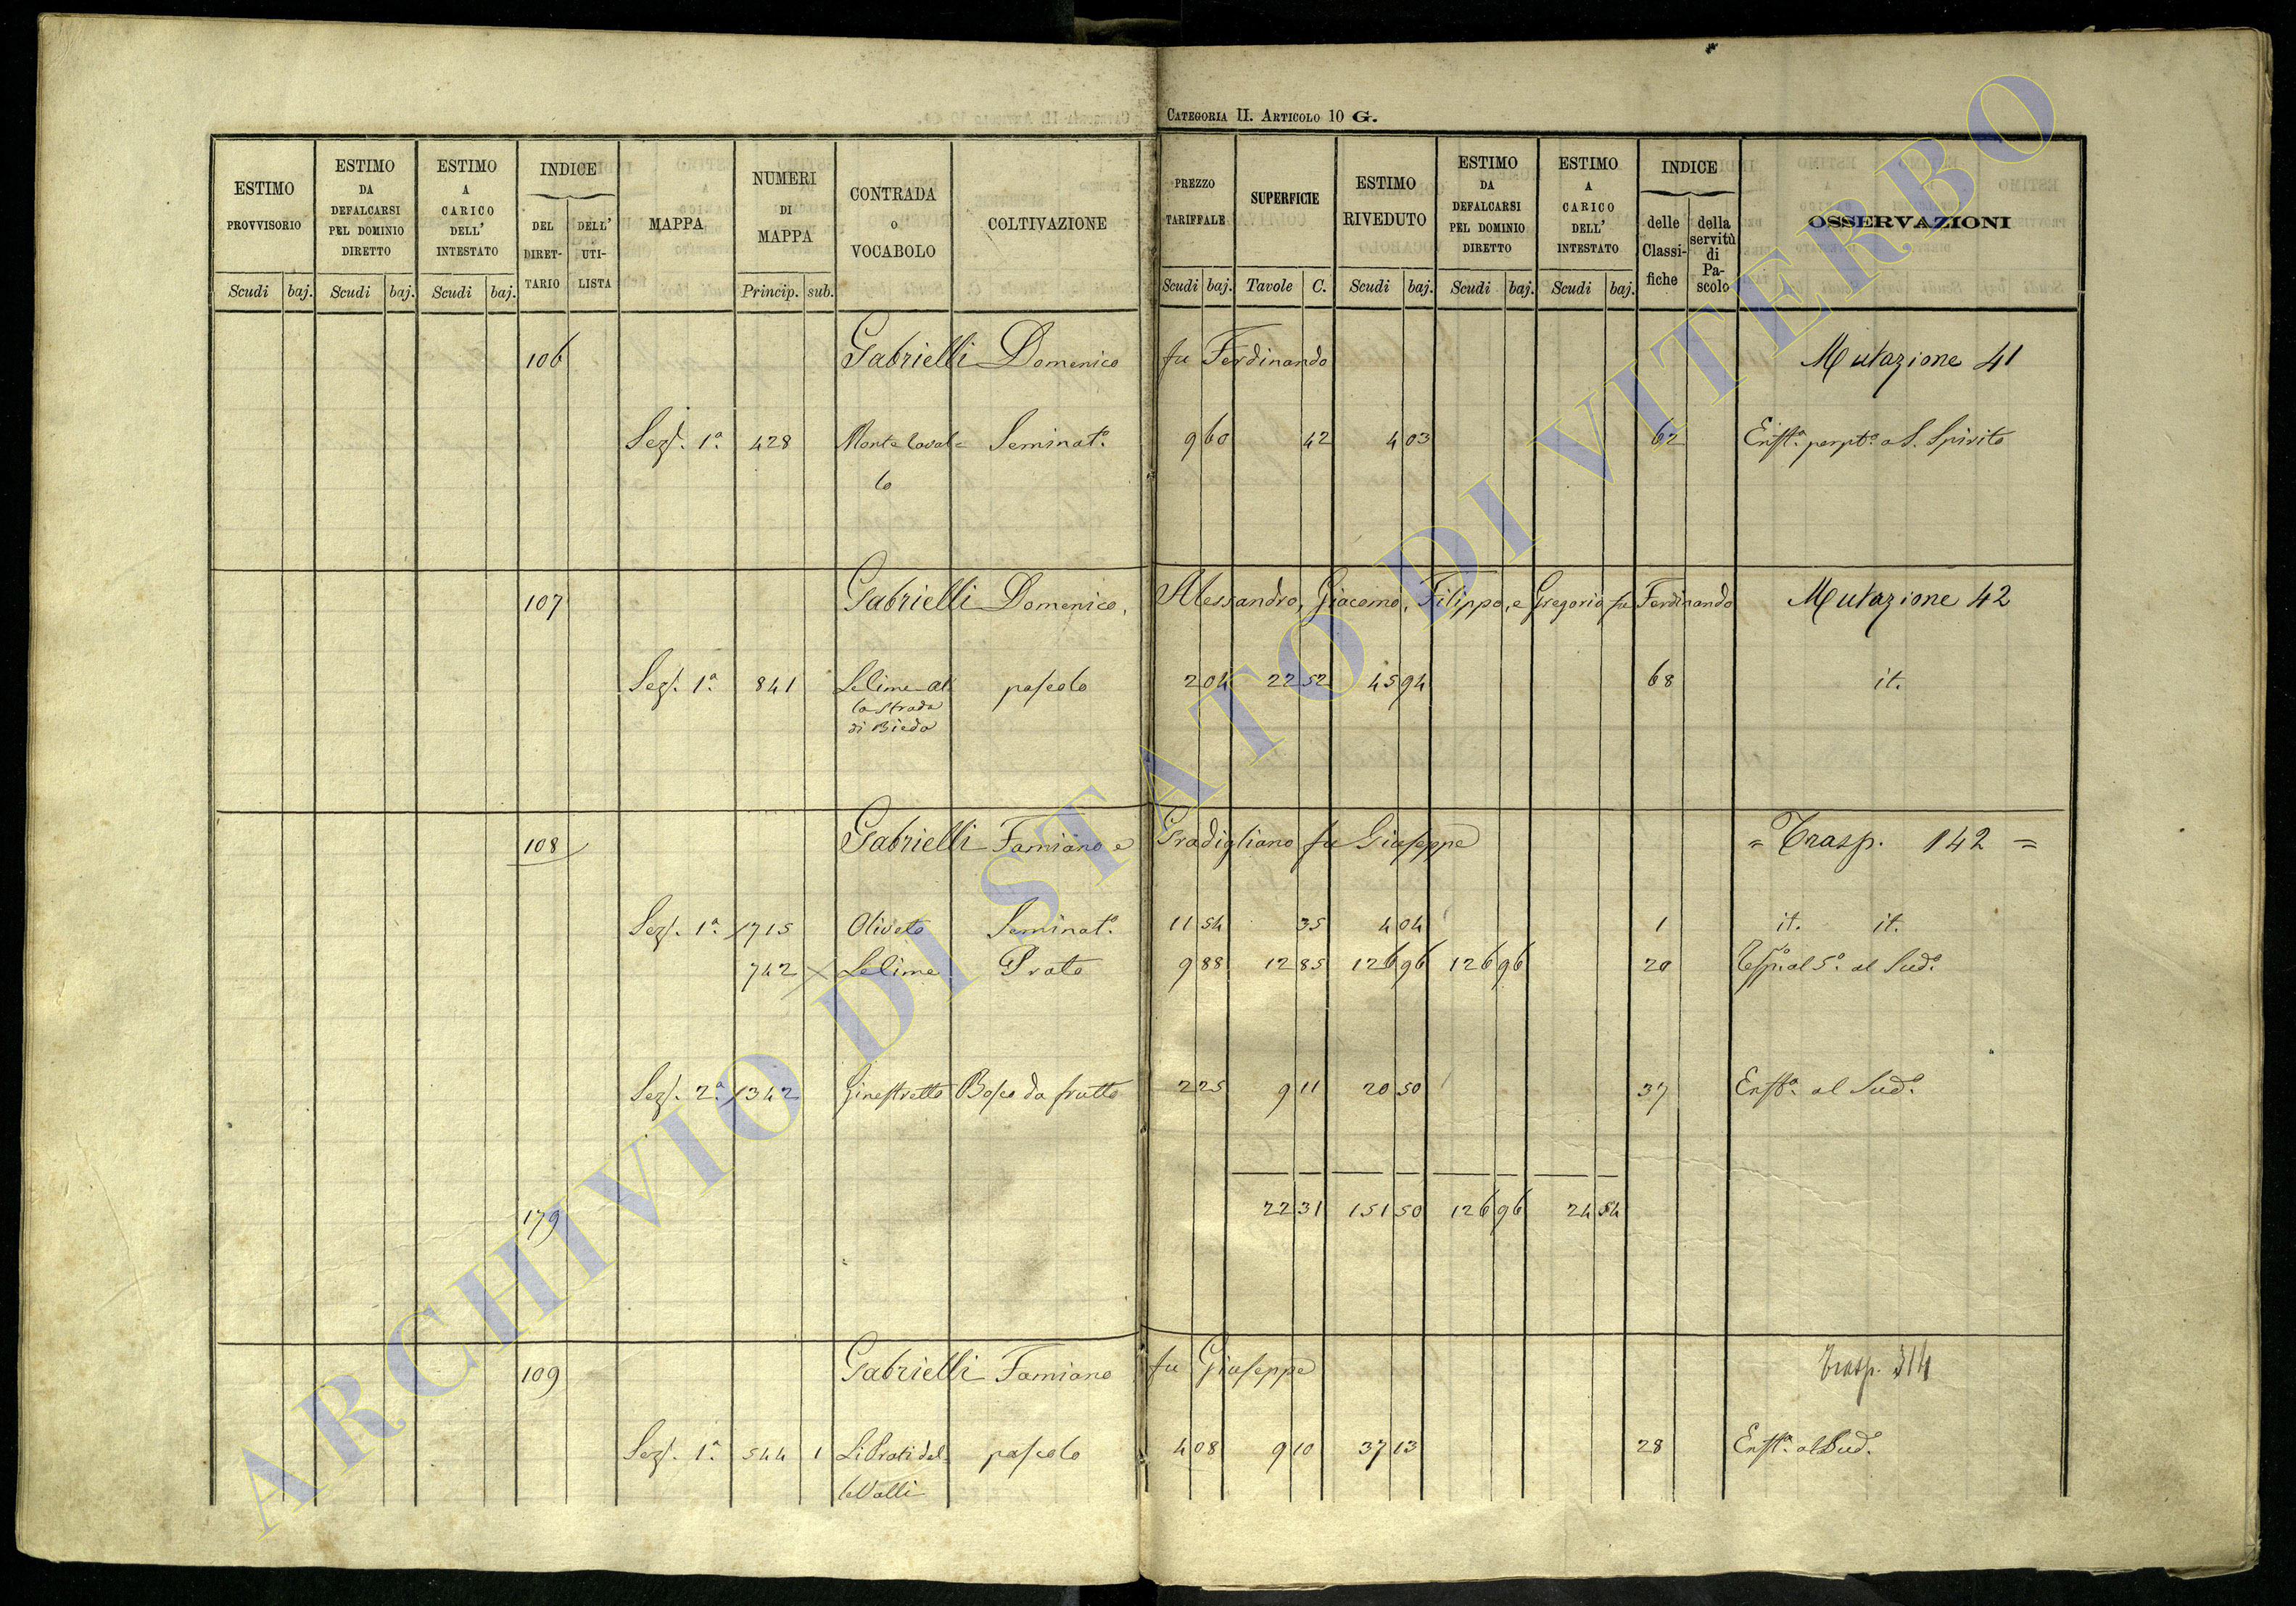 CATEGORIA II. ARTICOLO 10 G.
ESTIMO PROVVISORIO | ESTIMO DA DEFALCARSI PEL DOMINIO DIRETTO | ESTIMO A CARICO DELL' INTESTATO | INDICE DEL DIRET-TARIO | DELL' UTI-LISTA | MAPPA | NUMERI DI MAPPA | CONTRADA O VOCABOLO | COLTIVAZIONE | PREZZO TARIFFALE | SUPERFICIE | ESTIMO RIVEDUTO | ESTIMO DA DEFALCARSI PEL DOMINIO DIRETTO | ESTIMO A CARICO DELL' INTESTATO | INDICE delle Classi-fiche | della servitù di Pa-scolo | OSSERVAZIONI
Scudi baj. Scudi baj. Scudi baj. Princip. sub. Scudi baj. Tavole C. Scudi baj. Scudi baj. Scudi baj.
106 Gabrielli Domenico fu Ferdinando Mutazione 41
Sez. 1ª 428 Monte Caval= Seminatº 9 60 42 4 03 62 Enftª perptª a S. Spirito
lo
107 Gabrielli Domenico, Alessandro, Giacomo, Filippo, e Gregorio fu Ferdinando Mutazione 42
Sez. 1ª 841 Le Lime al pascolo 2 04 22 52 45 94 68 it.
la strada
di Bieda
108 Gabrielli Famiano e Gradigliano fu Giuseppe = Trasp. 142 =
Sez. 1ª 1715 Oliveto Seminatº 11 54 35 4 04 1 it. it.
742 Le Lime Prato 9 88 12 85 126 96 126 96 20 al Sudº
Sez. 2ª 1342 Ginestretto Bosco da frutto 2 25 9 11 20 50 37 Enftª al Sudº
179 22 31 151 50 126 96 24 54
109 Gabrielli Famiano fu Giuseppe Trasp. 314
Sez. 1ª 544 1 Li Prati del= pascolo 4 08 9 10 37 13 28 Enftª al Sudº
le Valli
ARCHIVIO DI STATO DI VITERBO